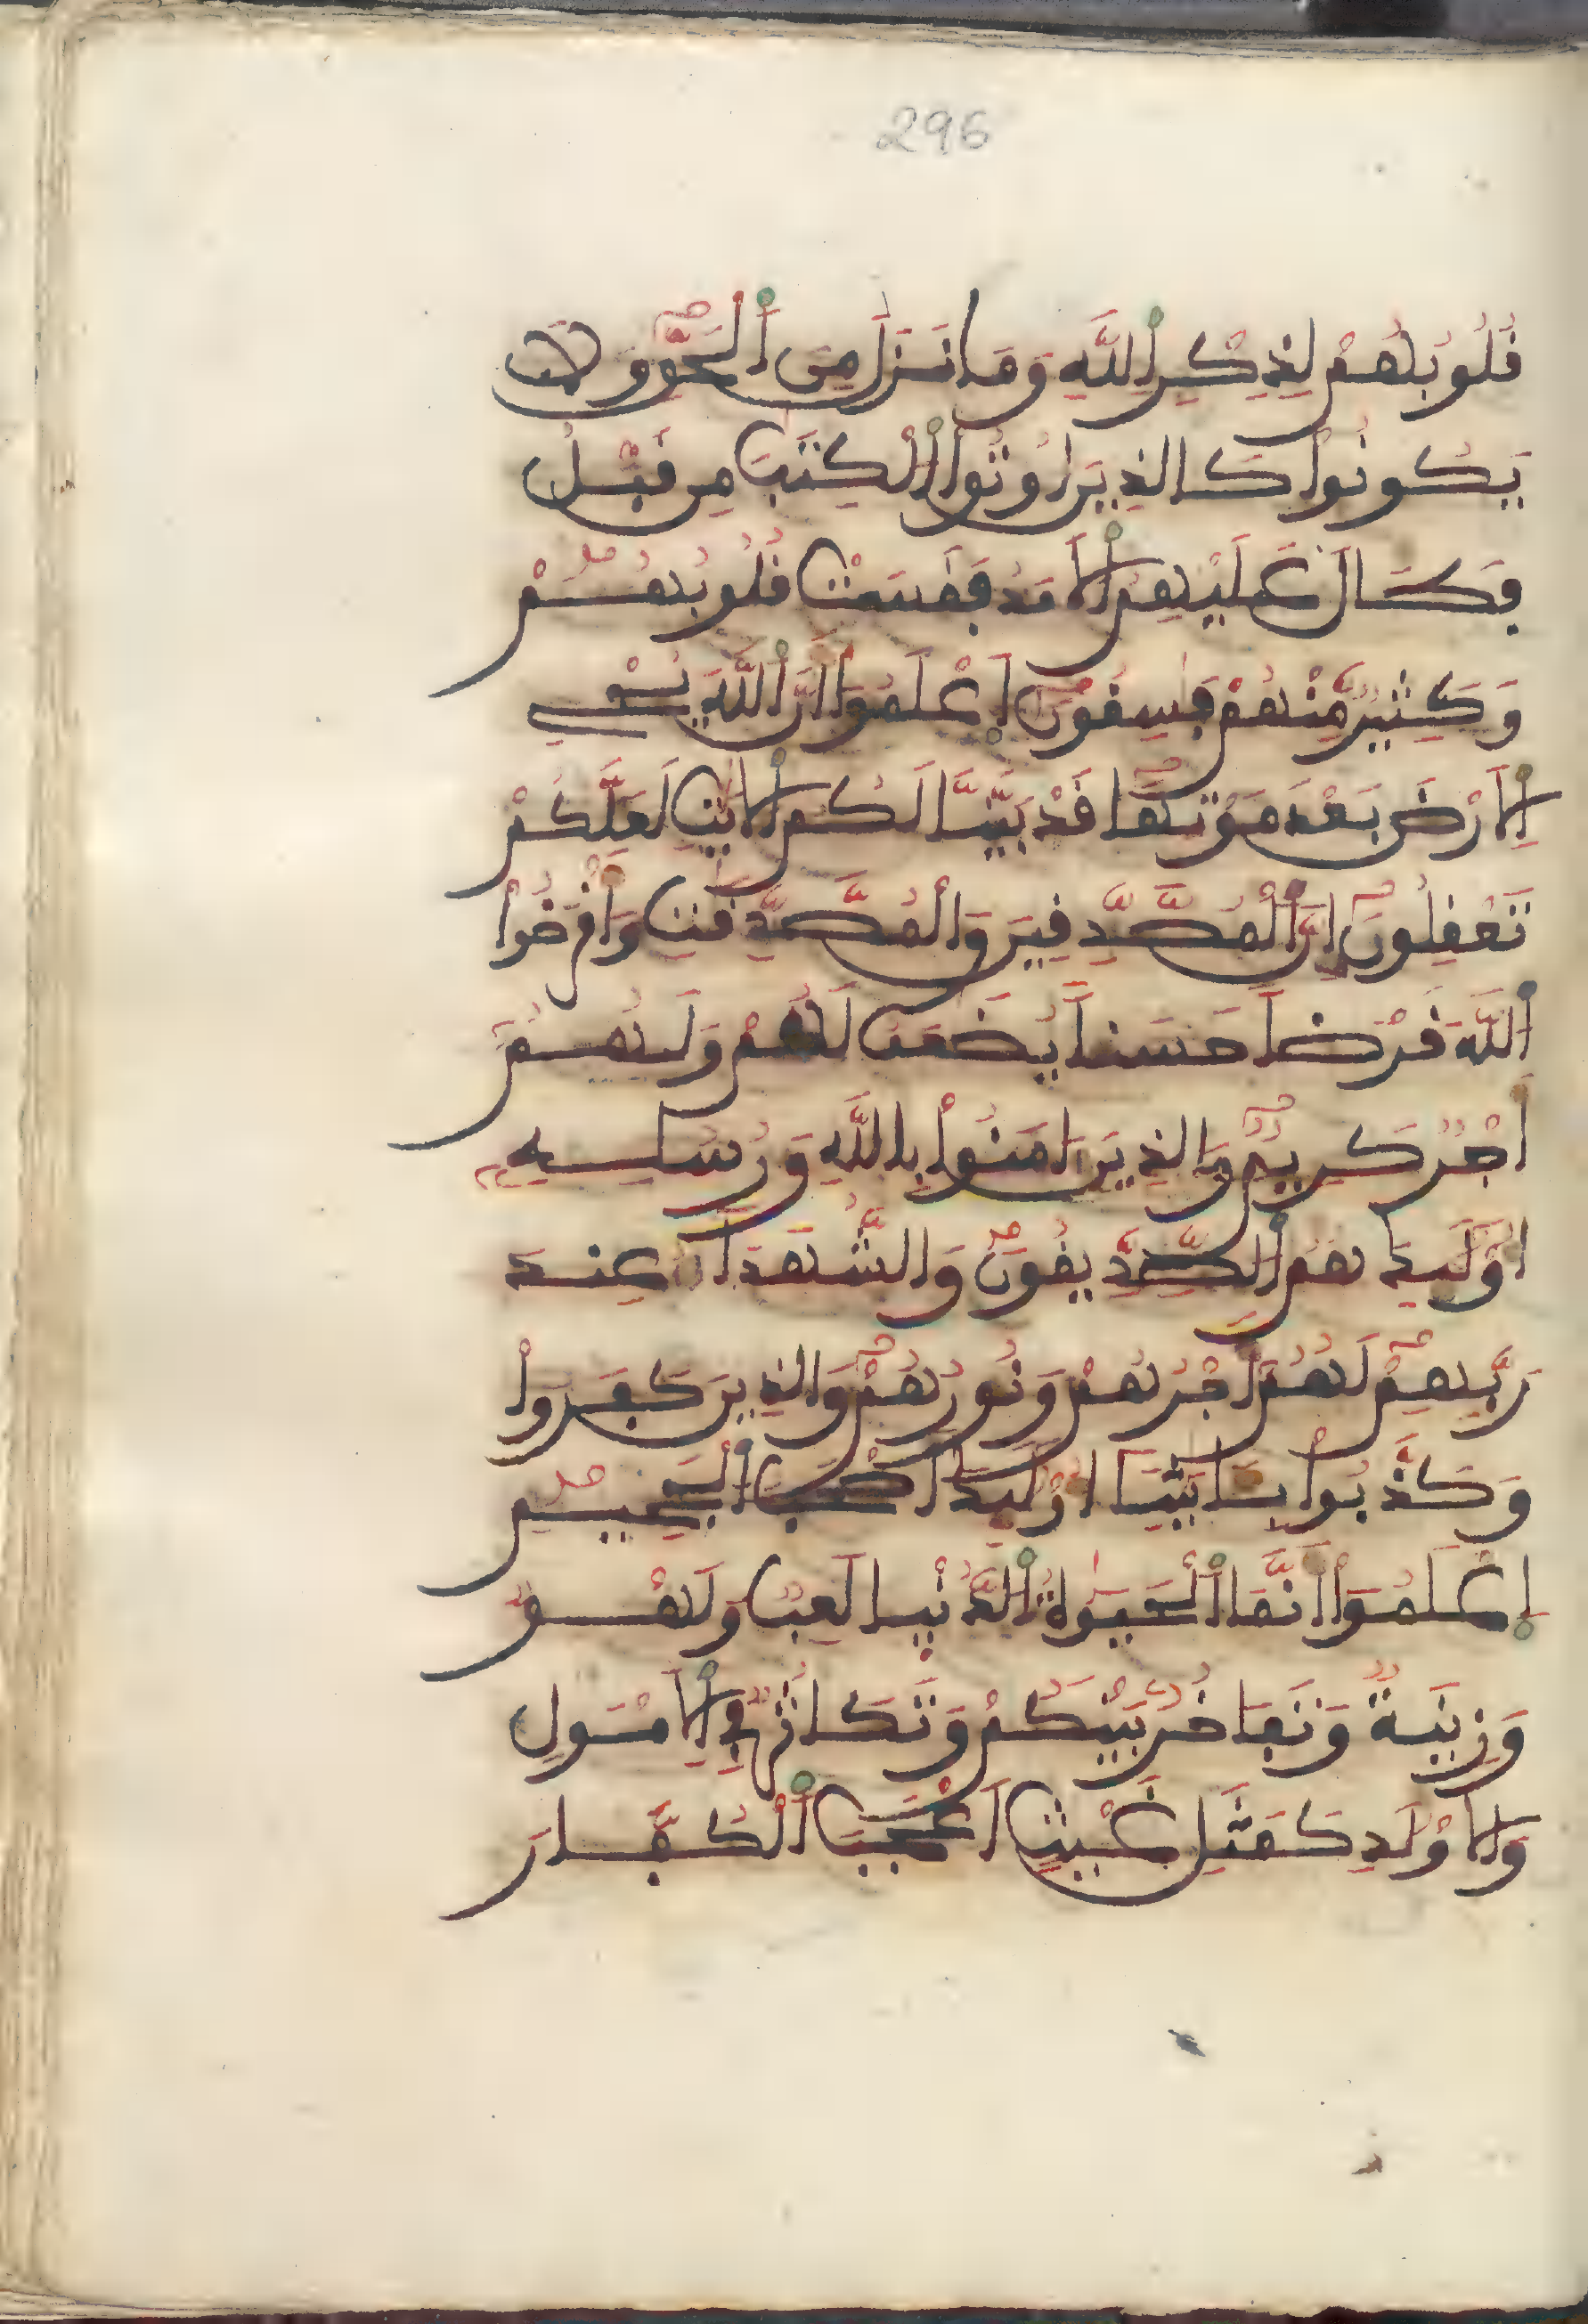 296
قُلُوبُهُمْ لِذِكْرِ اِ۬للَّهِ وَمَا نَزَلَ مِنَ اَ۬لْحَقِّ وَلَا
يَكُونُواْ كَالذِينَ أُوتُواْ اُ۬لْكِتَٰبَ مِن قَبْلُ
فَطَالَ عَلَيْهِمُ اُ۬لَامَدُ فَقَسَتْ قُلُوبُهُمْ
وَكَثِيرٌ مِّنْهُمْ فَٰسِقُونَ اَ۪عْلَمُوٓاْ أَنَّ اَ۬للَّهَ يُحْيِ
اِ۬لَارْضَ بَعْدَ مَوْتِهَا قَدْ بَيَّنَّا لَكُمُ اُ۬لَايَٰتِ لَعَلَّكُمْ
تَعْقِلُونَ إِنَّ اَ۬لْمُصَّدِّقِينَ وَالْمُصَّدِّقَٰتِ وَأَقْرَضُواْ
اُ۬للَّهَ قَرْضاً حَسَناً يُضَٰعَفُ لَهُمْ وَلَهُمُۥٓ
أَجْرٌ كَرِيمٌ وَالذِينَ ءَامَنُواْ بِاللَّهِ وَرُسُلِهِۦٓ
أُوْلَٰٓئِكَ هُمُ اُ۬لصِّدِّيقُونَ وَالشُّهَدَآءُ عِندَ
رَبِّهِمْ لَهُمُۥٓ أَجْرُهُمْ وَنُورُهُمْ وَالذِينَ كَفَرُواْ
وَكَذَّبُواْ بِـَٔايَٰتِنَآ أُوْلَٰٓئِكَ أَصْحَٰبُ اُ۬لْجَحِيمِ
اِ۪عْلَمُوٓاْ أَنَّمَا اَ۬لْحَيَوٰةُ اُ۬لدُّنْيَا لَعِبٌ وَلَهْوٌ
وَزِينَةٌ وَتَفَاخُرٌ بَيْنَكُمْ وَتَكَاثُرٌ فِي اِ۬لَامْوَٰلِ
وَالَاوْلَٰدِ كَمَثَلِ غَيْثٍ اَعْجَبَ اَ۬لْكُفَّارَ